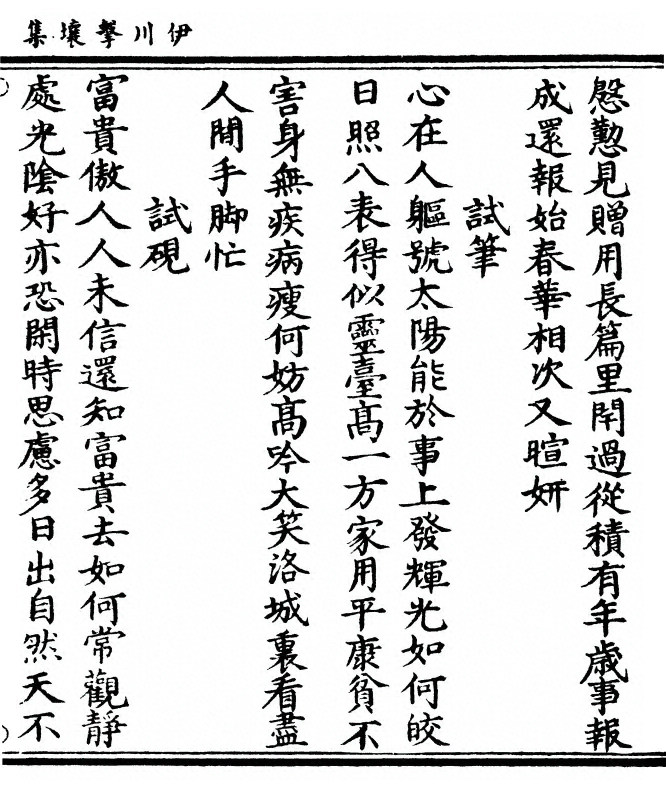 伊川擊壤集
慇懃見贈用長篇里閈過從積有年歲事報
成還報始春華相次又暄妍
試筆
心在人軀號太陽能於事上發輝光如何皎
日照八表得似靈臺高一方家用平康貧不
害身無疾病瘦何妨高吟大笑洛城裏看盡
人間手脚忙
試硯
富貴傲人人未信還知富貴去如何常觀靜
處光陰好亦恐閑時思慮多日出自然天不